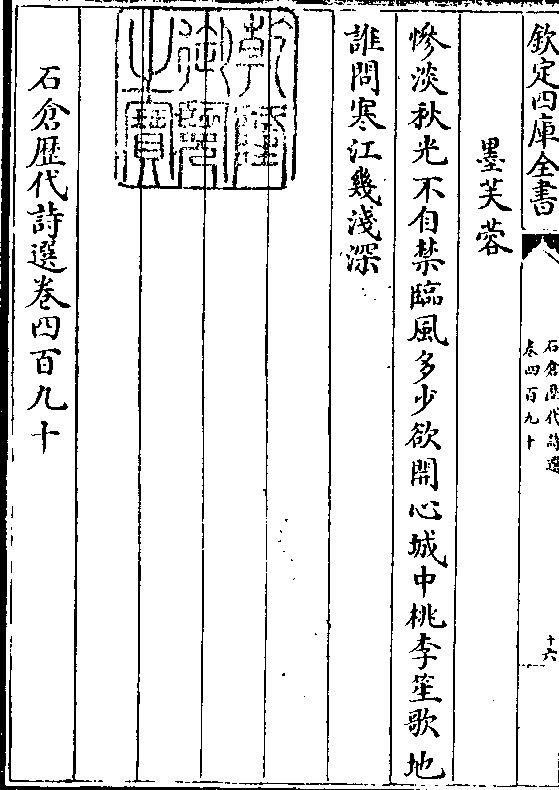 欽定四庫全書
石倉歷代詩選
卷四百九十
十六
墨芙蓉
慘淡秋光不自禁臨風多少欲開心城中桃李笙歌地
誰問寒江幾淺深
乾隆御覽之寶
石倉歷代詩選卷四百九十